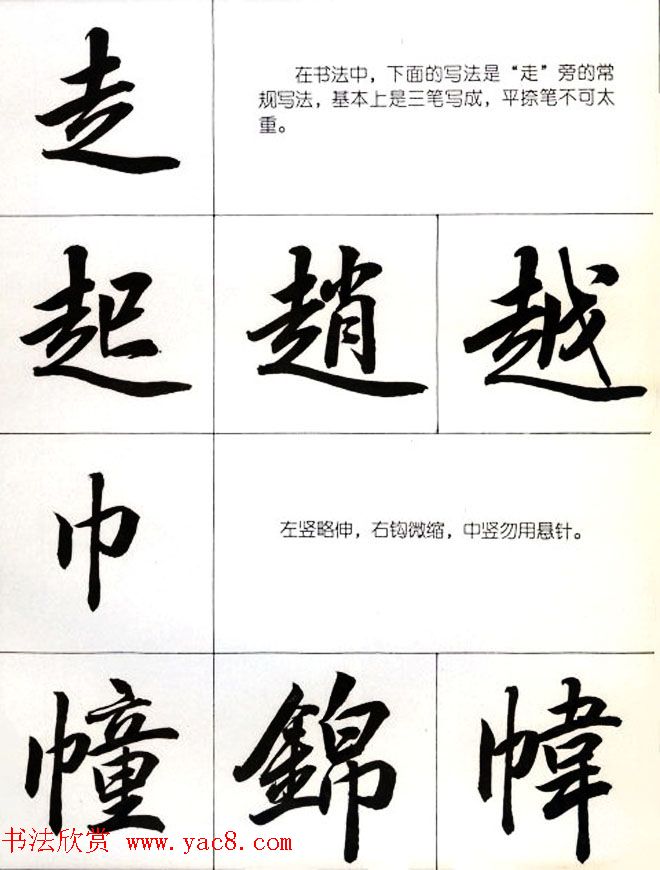 走
在书法中，下面的写法是“走”旁的常
规写法，基本上是三笔写成，平捺笔不可太
重。
起 趙 越
巾
左竖略伸，右钩微缩，中竖勿用悬针。
幢 錦 幃
书法欣赏 www.yac8.com